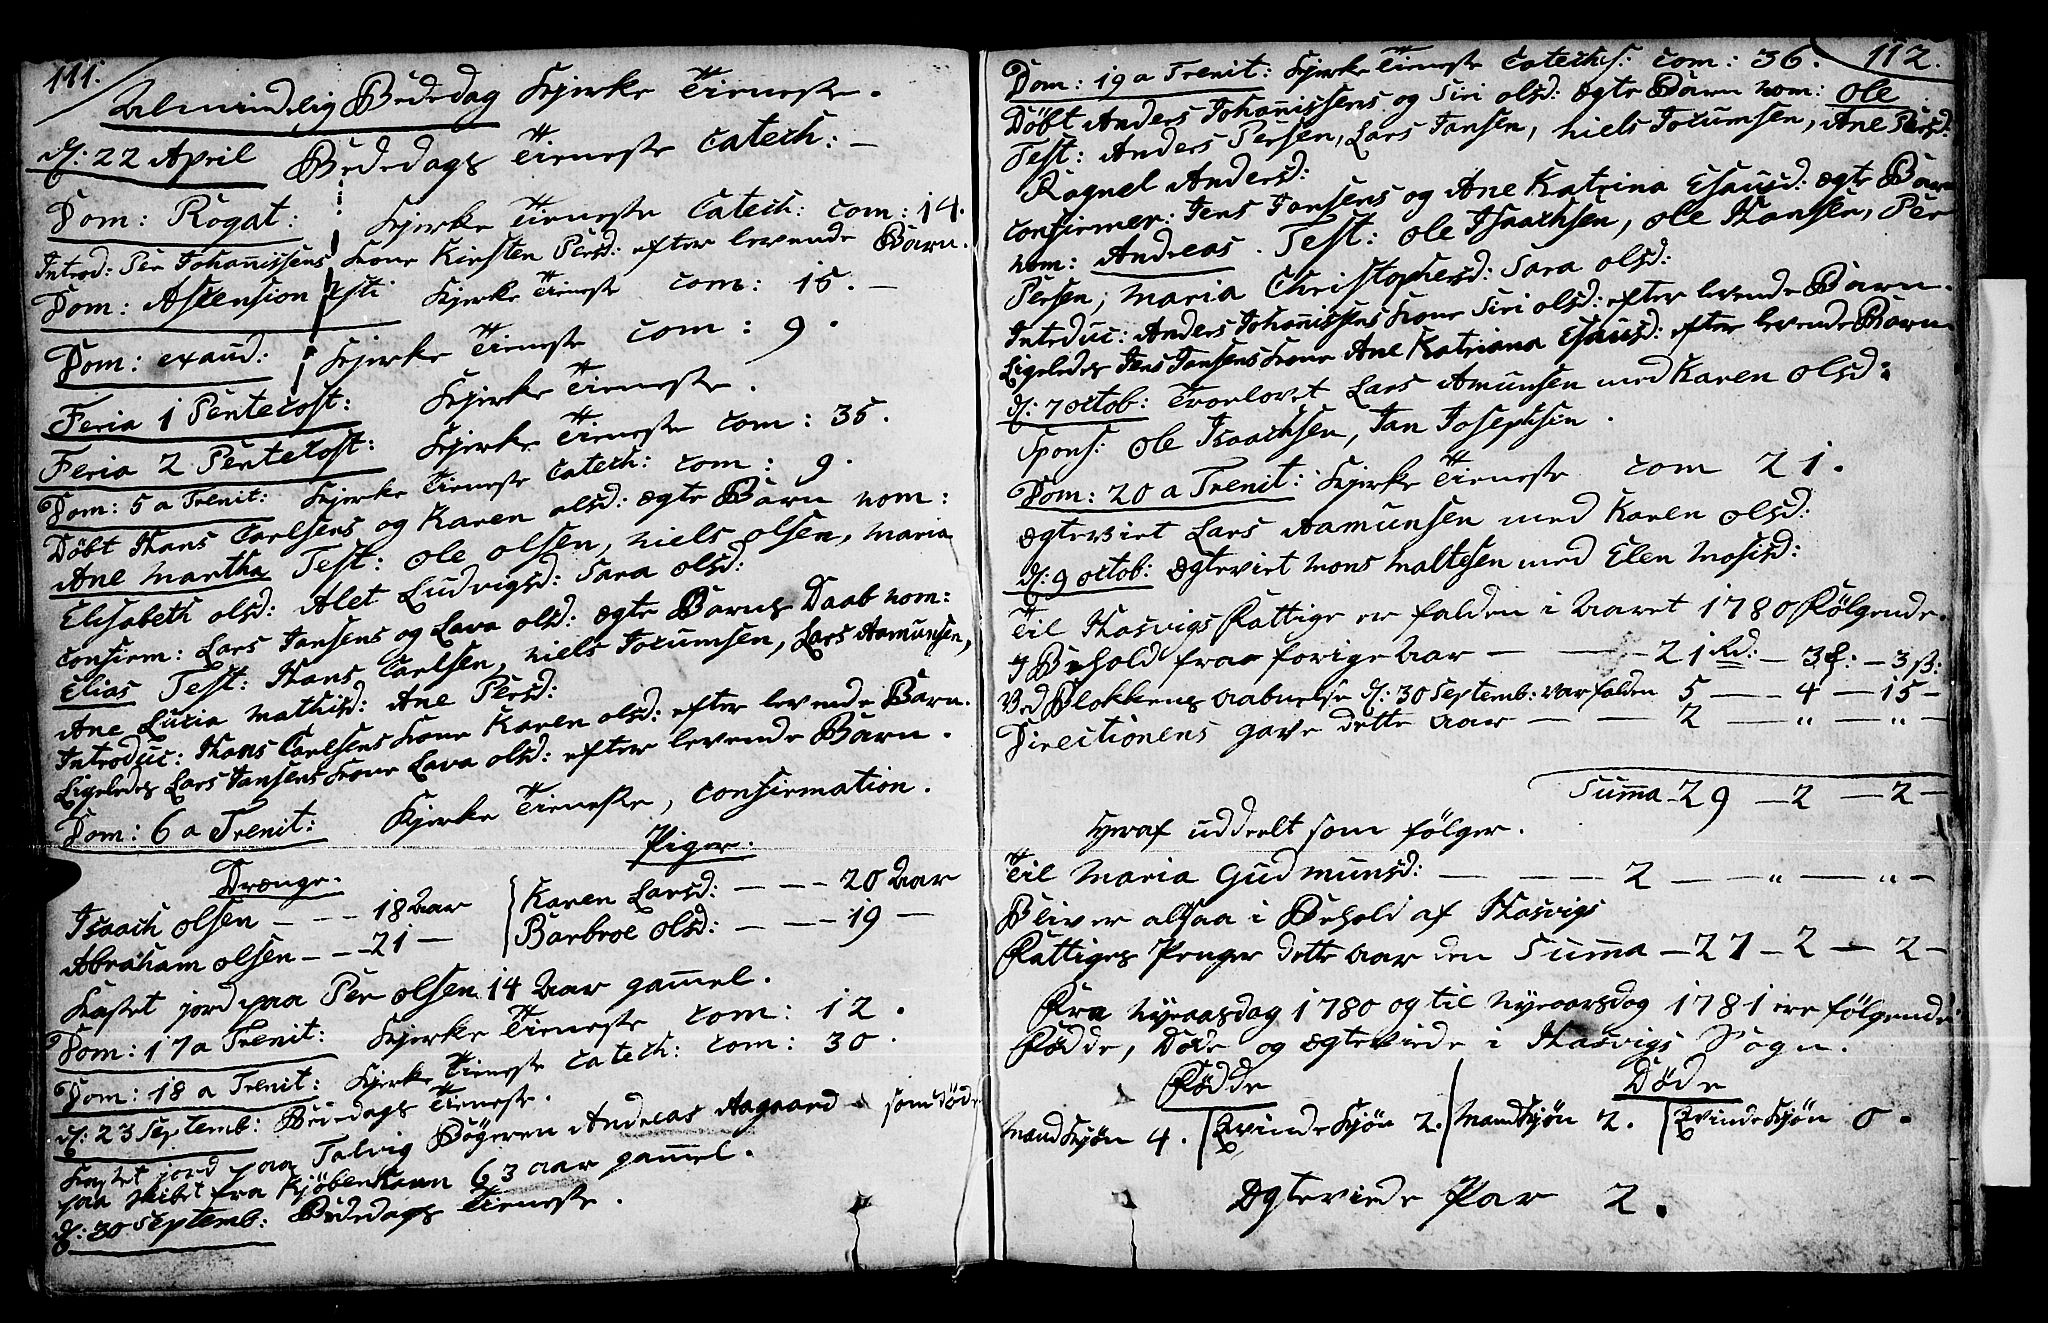 111.
Almindelig Bededag Kjerke Tieneste.
d: 22 April Bededags Tieneste Catech: —
Dom: Rogat: Kjerke Tieneste Catech: Com: 14.
Introd: Per Johanissens Kone Kirsten Persd: efter levende Barn.
Dom: Ascension Xsti Kjerke Tieneste Com: 15. —
Dom: exaud: Kjerke Tieneste Com: 9.
Feria 1 Pentecost: Kjerke Tieneste.
Feria 2 Pentecost: Kjerke Tieneste Com: 35.
Dom: 5 a Trenit: Kjerke Tieneste Catech: Com: 9.
Döbt Hans Carlsens og Karen olsd: ægte Barn nom:
Ane Martha Test: Ole olsen, Niels olsen, Maria
Elisabeth olsd: Alet Ludvigsd: Sara olsd:
Confirm: Lars Jansens og Lava olsd: ægte Barns Daab nom:
Elias Test: Hans Carlsen, Niels Jocumsen, Lars Aamunsen,
Ane Lucia Mathisd: Ane Persd:
Introduc: Hans Carlsens Kone Karen olsd: efter levende Barn.
Ligeledes Lars Jansens Kone Lava olsd: efter levende Barn.
Dom: 6 a Trenit: Kjerke Tieneste, Confirmation.
Drenge. Piger.
Isaach olsen — — — 18 Aar Karen Larsd: — — — 20 Aar
Abraham olsen — — 21 — Barbroe olsd: — — — 19 —
Kastet jord paa Per olsen 14 Aar gamel.
Dom: 17 a Trenit: Kjerke Tieneste Com: 12.
Dom: 18 a Trenit: Kjerke Tieneste Catech: Com: 30.
d: 23 Septemb: Bededags Tieneste.
Kastet jord paa Talvig Bögeren Andreas Aagaard som döde
paa skibet fra Kjöbenhavn 63 aar gamel.
d: 30 Septemb: Bededags Tieneste.
112.
Dom: 19 a Trenit: Kjerke Tieneste Catechs: Com: 36.
Döbt Anders Johanissens og Siri olsd: ægte Barn nom: Ole
Test: Anders Persen, Lars Jansen, Niels Jocumsen, Ane Persd:
Ragnel Andersd:
Confirmer: Jens Jansens og Ane Katrina Esausd: ægte Barn
nom: Andreas. Test: Ole Isaachsen, Ole Hansen, Per
Persen, Maria Christophersd: Sara olsd:
Introduc: Anders Johanissens Kone Siri olsd: efter levende Barn.
Ligeledes Jens Jansens Kone Ane Katriana Esausd: efter levende Barn
d: 7 octob: Trorlovet Lars Amunsen med Karen olsd:
Spons: Ole Isaachsen, Jan Josephsin.
Dom: 20 a Trenit: Kjerke Tieneste Com 21.
Ægteviet Lars Aamunsen med Karen olsd:
d: 9 octob: Ægteviet Mons Maltesen med Elen Mosisd:
Til Hasvigs Fattige er falden i Aaret 1780 Fölgende.
I Behold fra forige Aar — — — 21 Rd: — 3 — 3 ß:
Ved Blokkens aabnelse d: 30 Septemb: var falden 5 — 4 — 15 —
Directionens gave dette aar — — — 2 — „ — „ —
Summa — 29 — 2 — 2 —
Heraf uddeelt som fölger.
Til Maria Gudmunsd: — — — 2 — „ — „ —
Bliver altsaa i Behold af Hasvigs
Fattiges Penger dette aar den Summa — 27 — 2 — 2 —
Fra Nyeaarsdag 1780 og til Nyeaarsdag 1781 ere fölgende
Födde, Döde og ægteviede i Hasvigs Sogn.
Födde Döde
Mandkjön 4. Qvindekjön 2. Mandkjön 2. Qvindekjön 0.
Ægteviede Par 2.